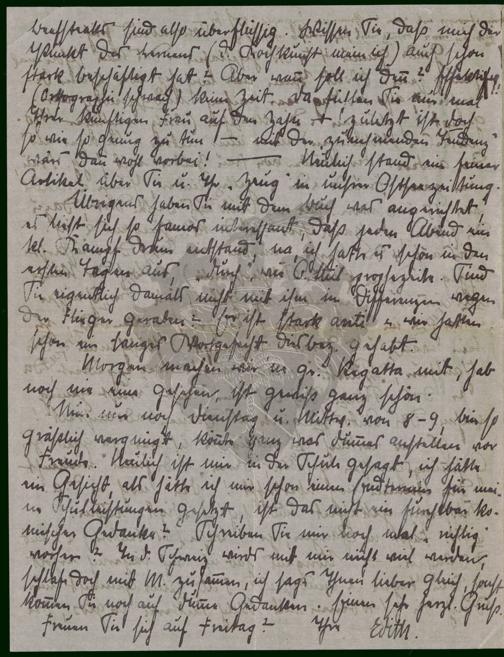 beefsteaks sind also überflüssig. Wissen Sie, daß mich der
Punkt des Lernens (d. Kochkunst mein ich) auch schon
stark beschäftigt hat? Aber wann soll ich denn?
(Ortographie schwach) keine Zeit. Da fühlen Sie nur mal
Ihrer künftigen Frau auf den Zahn +, zuletzt ist doch
so wie so genug zu tun — mit der zunehmenden Tendenz
wärs dann wohl vorbei! — Neulich stand ein feiner
Artikel über Sie u. Ihr "Zeug" in unsrer Ostseezeitung
Übrigens haben Sie mit dem Buch was angerichtet,
es liest sich so famos interessant daß jeden Abend ein
kl. Kampf drum entstand, na ich hatte es schon in den
ersten Tagen aus, prophezeite. Sind
Sie eigentlich damals nicht mit ihm in Differenzen wegen
der Flieger geraten? Er ist stark anti u. wir hatten
schon ein langes Wortgefecht dieserhalb gehabt.
Morgen machen wir ne gr. Regatta mit, hab
noch nie eine gesehen, ist gewiß ganz schön.
Nun nur noch Dienstag u. Mittw. von 8-9, bin so
gräßlich vergnügt, könnte ganz was dummes anstellen vor
Freude. Neulich ist mir in der Schule gesagt, ich hätte
ein Gesicht, als hätte ich mir schon einen für mei-
ne Schulleistungen gesetzt, ist das nicht ein furchtbar ko-
mischer Gedanke? Schreiben Sie mir noch mal "richtig"
vorher? In d. Schweiz wirds mit mir nicht viel werden,
schlafe doch mit M. zusammen, ich sags Ihnen lieber gleich, sonst
kommen Sie noch auf dumme Gedanken. Ihnen sehr herzl. Gruß.
Freuen Sie sich auf Freitag? Ihre Edith.